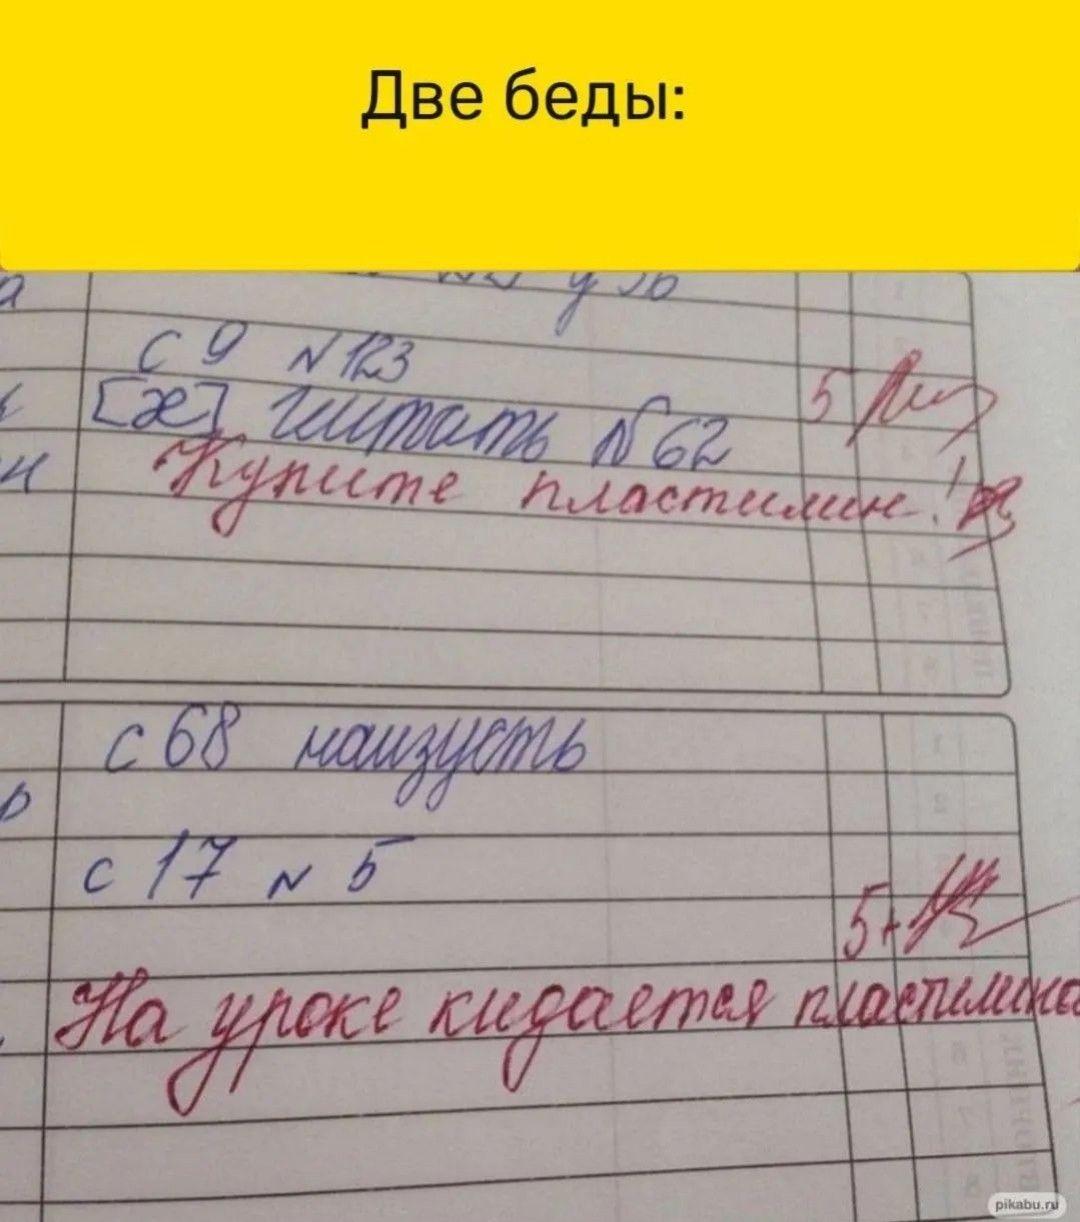 Две беды:
с 9 N 123
5
[ж] читать N 62
Купите пластилин!
с 68 наизусть
с 17 N 5
5+
На уроке кидается пластилино
pikabu.ru